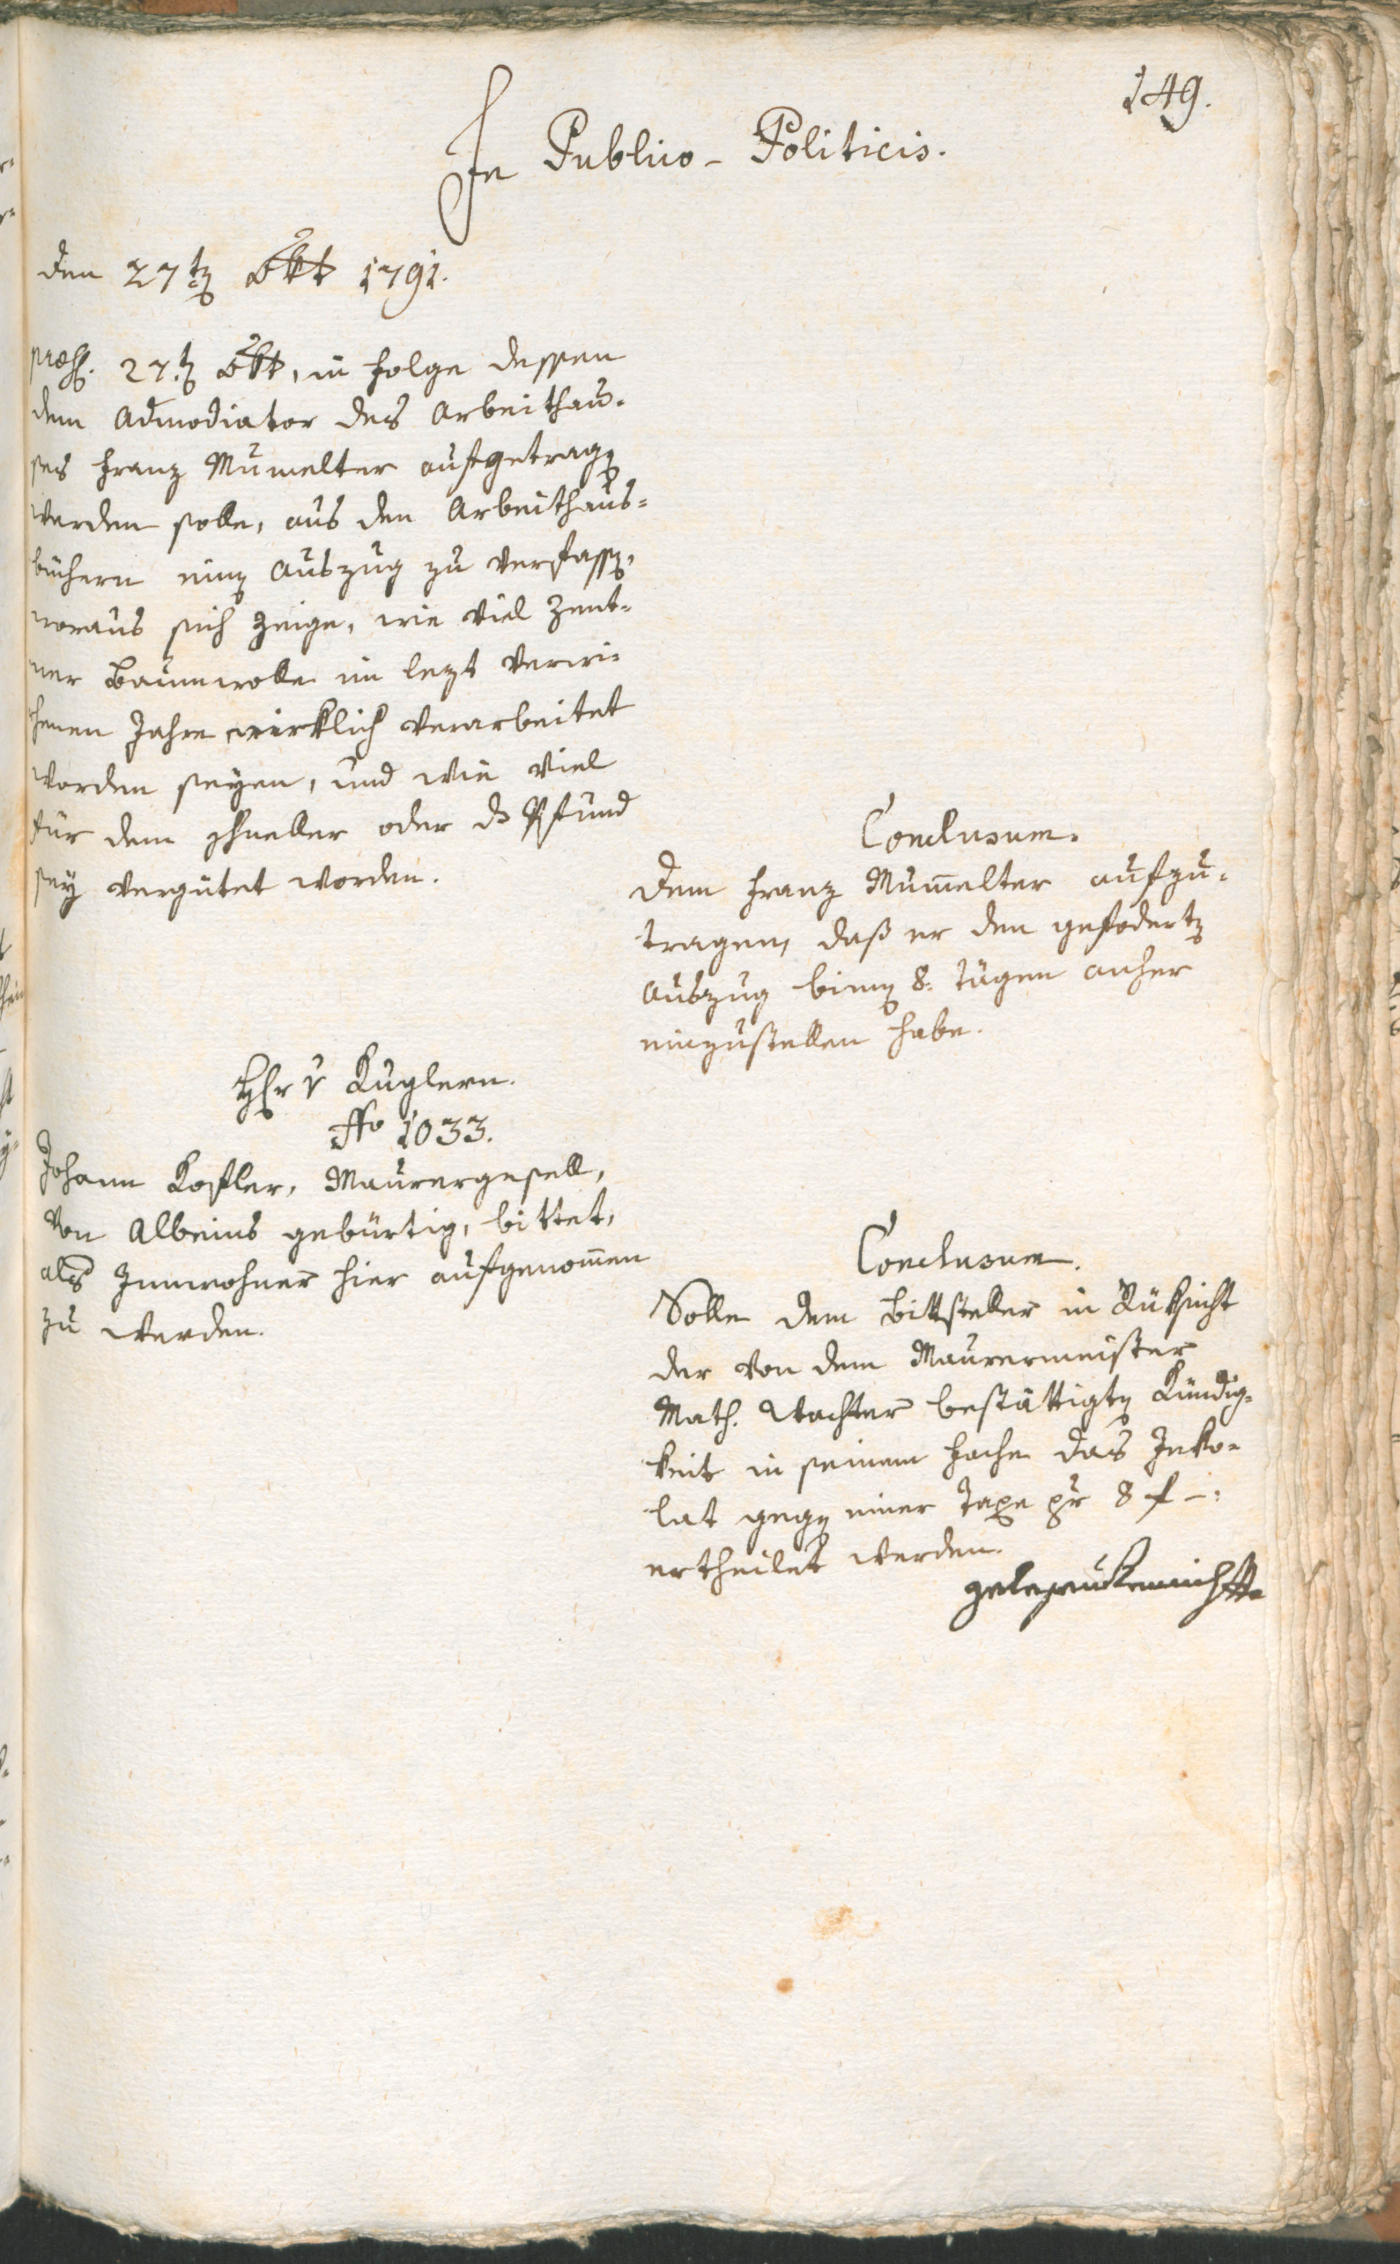 149.
In Publico-Politicis.
den 27ten 8br 1791.
præs. 27.ten 8br, in Folge dessen
dem Admodiator des Arbeithau-
ses Franz Mumelter aufgetragen
werden solle, aus den Arbeithaus-
büchern einen Auszug zu verfassen,
woraus sich zeige, wie viel Zent-
ner Baumwolle im lezt verwi-
chenen Jahre wirklich verarbeitet
worden seyen, und wie viel
für dem Schneller oder das Pfund
sey vergütet worden.
Conclusum.
Dem Franz Mumelter aufzu-
tragen, daß er den gefoderten
Auszug binnen 8. Tägen anher
einzustellen habe.
Hr v Kuglern.
No 1033.
Johann Kofler, Maurergesell,
von Albeins gebürtig, bittet,
als Innwohner hier aufgenomen
zu werden.
Conclusum.
Solle dem Bittsteller in Rüksicht
der von dem Maurermeister
Math. Wachter bestättigten Kündig-
keit in seinem Fache das Inko-
lat gegen einer Taxe pr 8 f -:
ertheilet werden.